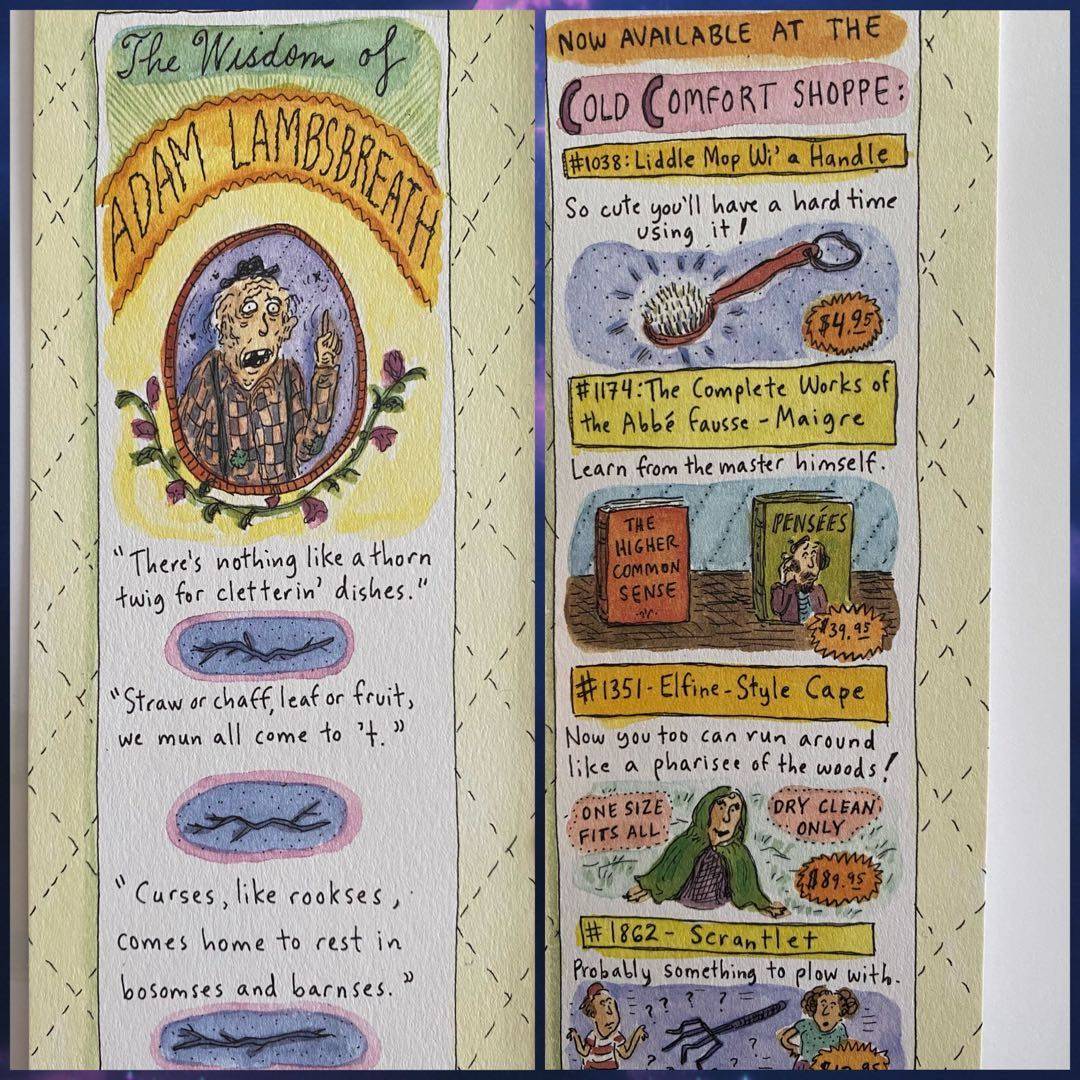 The Wisdom of
ADAM LAMBSBREATH
"There's nothing like a thorn
twig for cletterin' dishes."
"Straw or chaff, leaf or fruit,
we mun all come to 't."
"Curses, like rookses,
comes home to rest in
bosomses and barnses."
NOW AVAILABLE AT THE
COLD COMFORT SHOPPE:
#1038: Liddle Mop Wi' a Handle
So cute you'll have a hard time
using it!
$4.95
#1174: The Complete Works of
the Abbé Fausse-Maigre
Learn from the master himself.
THE
HIGHER
COMMON
SENSE
PENSÉES
$39.95
#1351- Elfine-Style Cape
Now you too can run around
like a pharisee of the woods!
ONE SIZE
FITS ALL
DRY CLEAN
ONLY
$89.95
#1862- Scrantlet
Probably something to plow with.
? ? ? ? ? ?